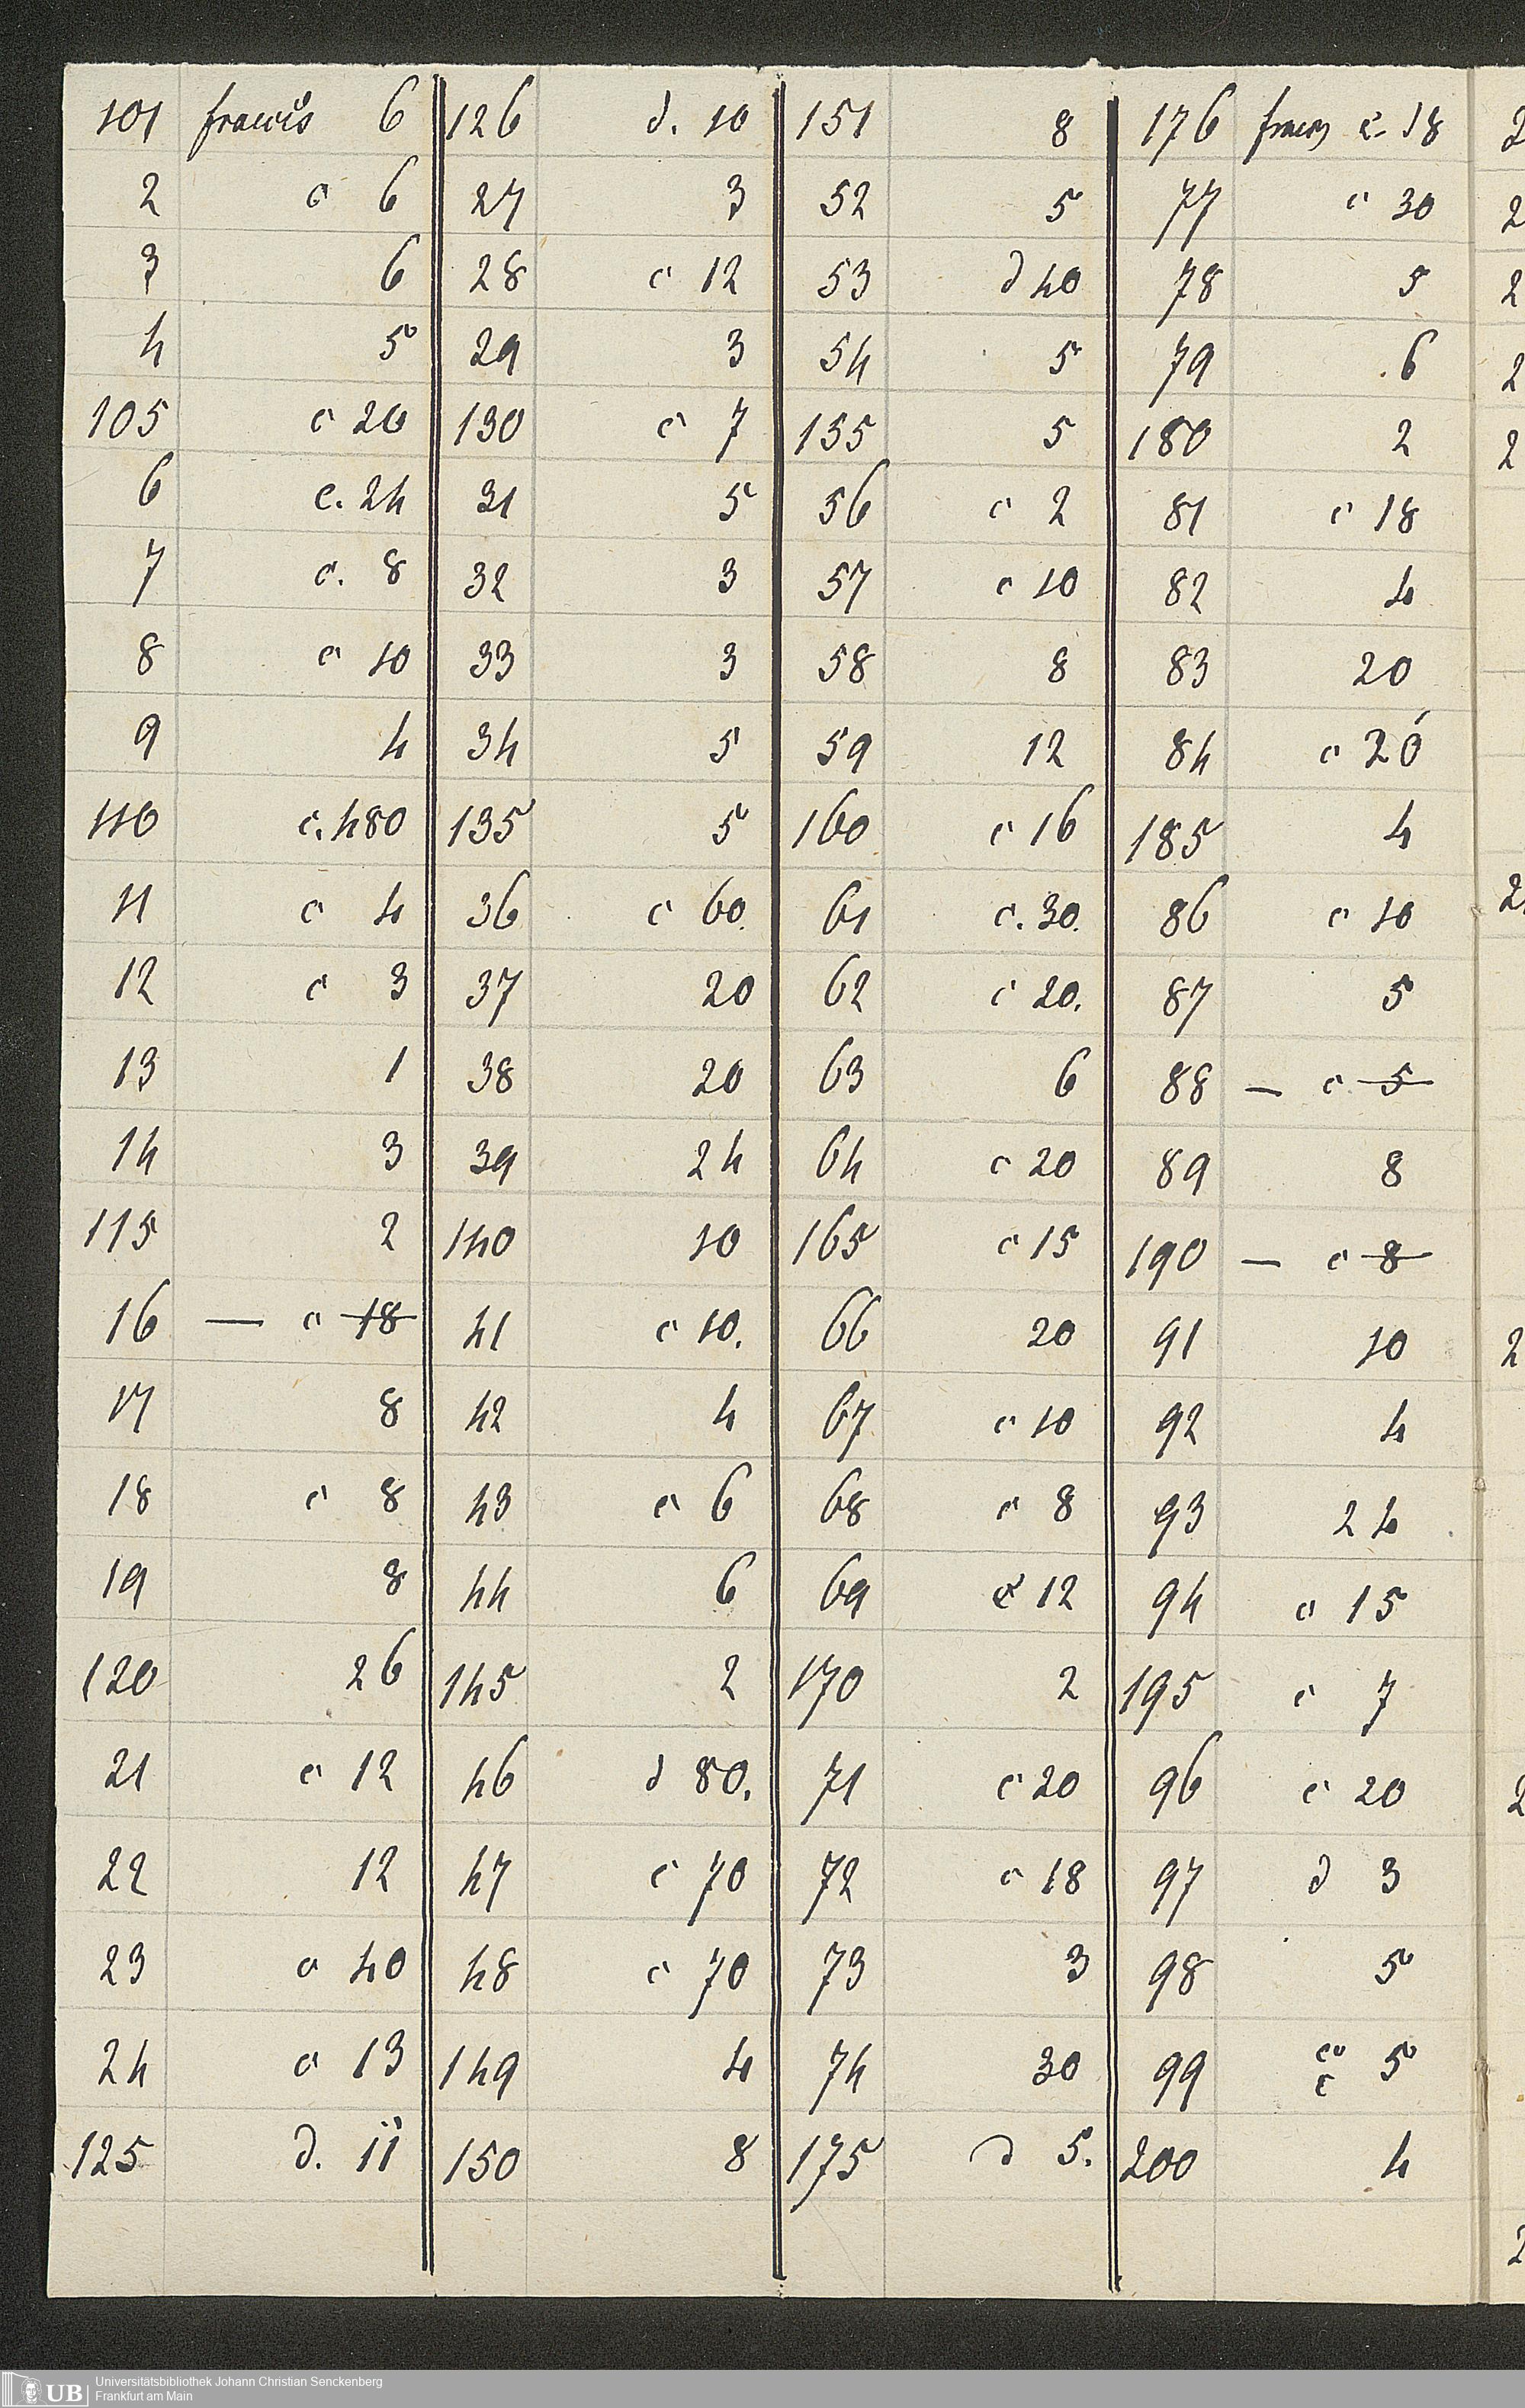 101 francs 6 126 d. 10 151 8 176 francs c. 18
2 c 6 27 3 52 5 77 c 30
3 6 28 c 12 53 d 40 78 5
4 5 29 3 54 5 79 6
105 c 20 130 c 7 155 5 180 2
6 c. 24 31 5 56 c 2 81 c 18
7 c. 8 32 3 57 c 10 82 4
8 c 10 33 3 58 8 83 20
9 4 34 5 59 12 84 c 20
110 c. 480 135 5 160 c 16 185 4
11 c 4 36 c 60. 61 c. 30. 86 c 10
12 c 3 37 20 62 c 20. 87 5
13 1 38 20 63 6 88 — c 5
14 3 39 24 64 c 20 89 8
115 2 140 10 165 c 15 190 — c 8
16 — c 18 41 c 10. 66 20 91 10
17 8 42 4 67 c 10 92 4
18 c 8 43 c 6 68 c 8 93 24
19 8 44 6 69 c 12 94 c 15
120 26 145 2 170 2 195 c 7
21 c 12 46 d 80. 71 c 20 96 c 20
22 12 47 c 70 72 c 18 97 d 3
23 c 40 48 c 70 73 3 98 5
24 c 13 149 4 74 30 99 c 5
125 d. 11 150 8 175 d 5. 200 4
UB Universitätsbibliothek Johann Christian Senckenberg
Frankfurt am Main